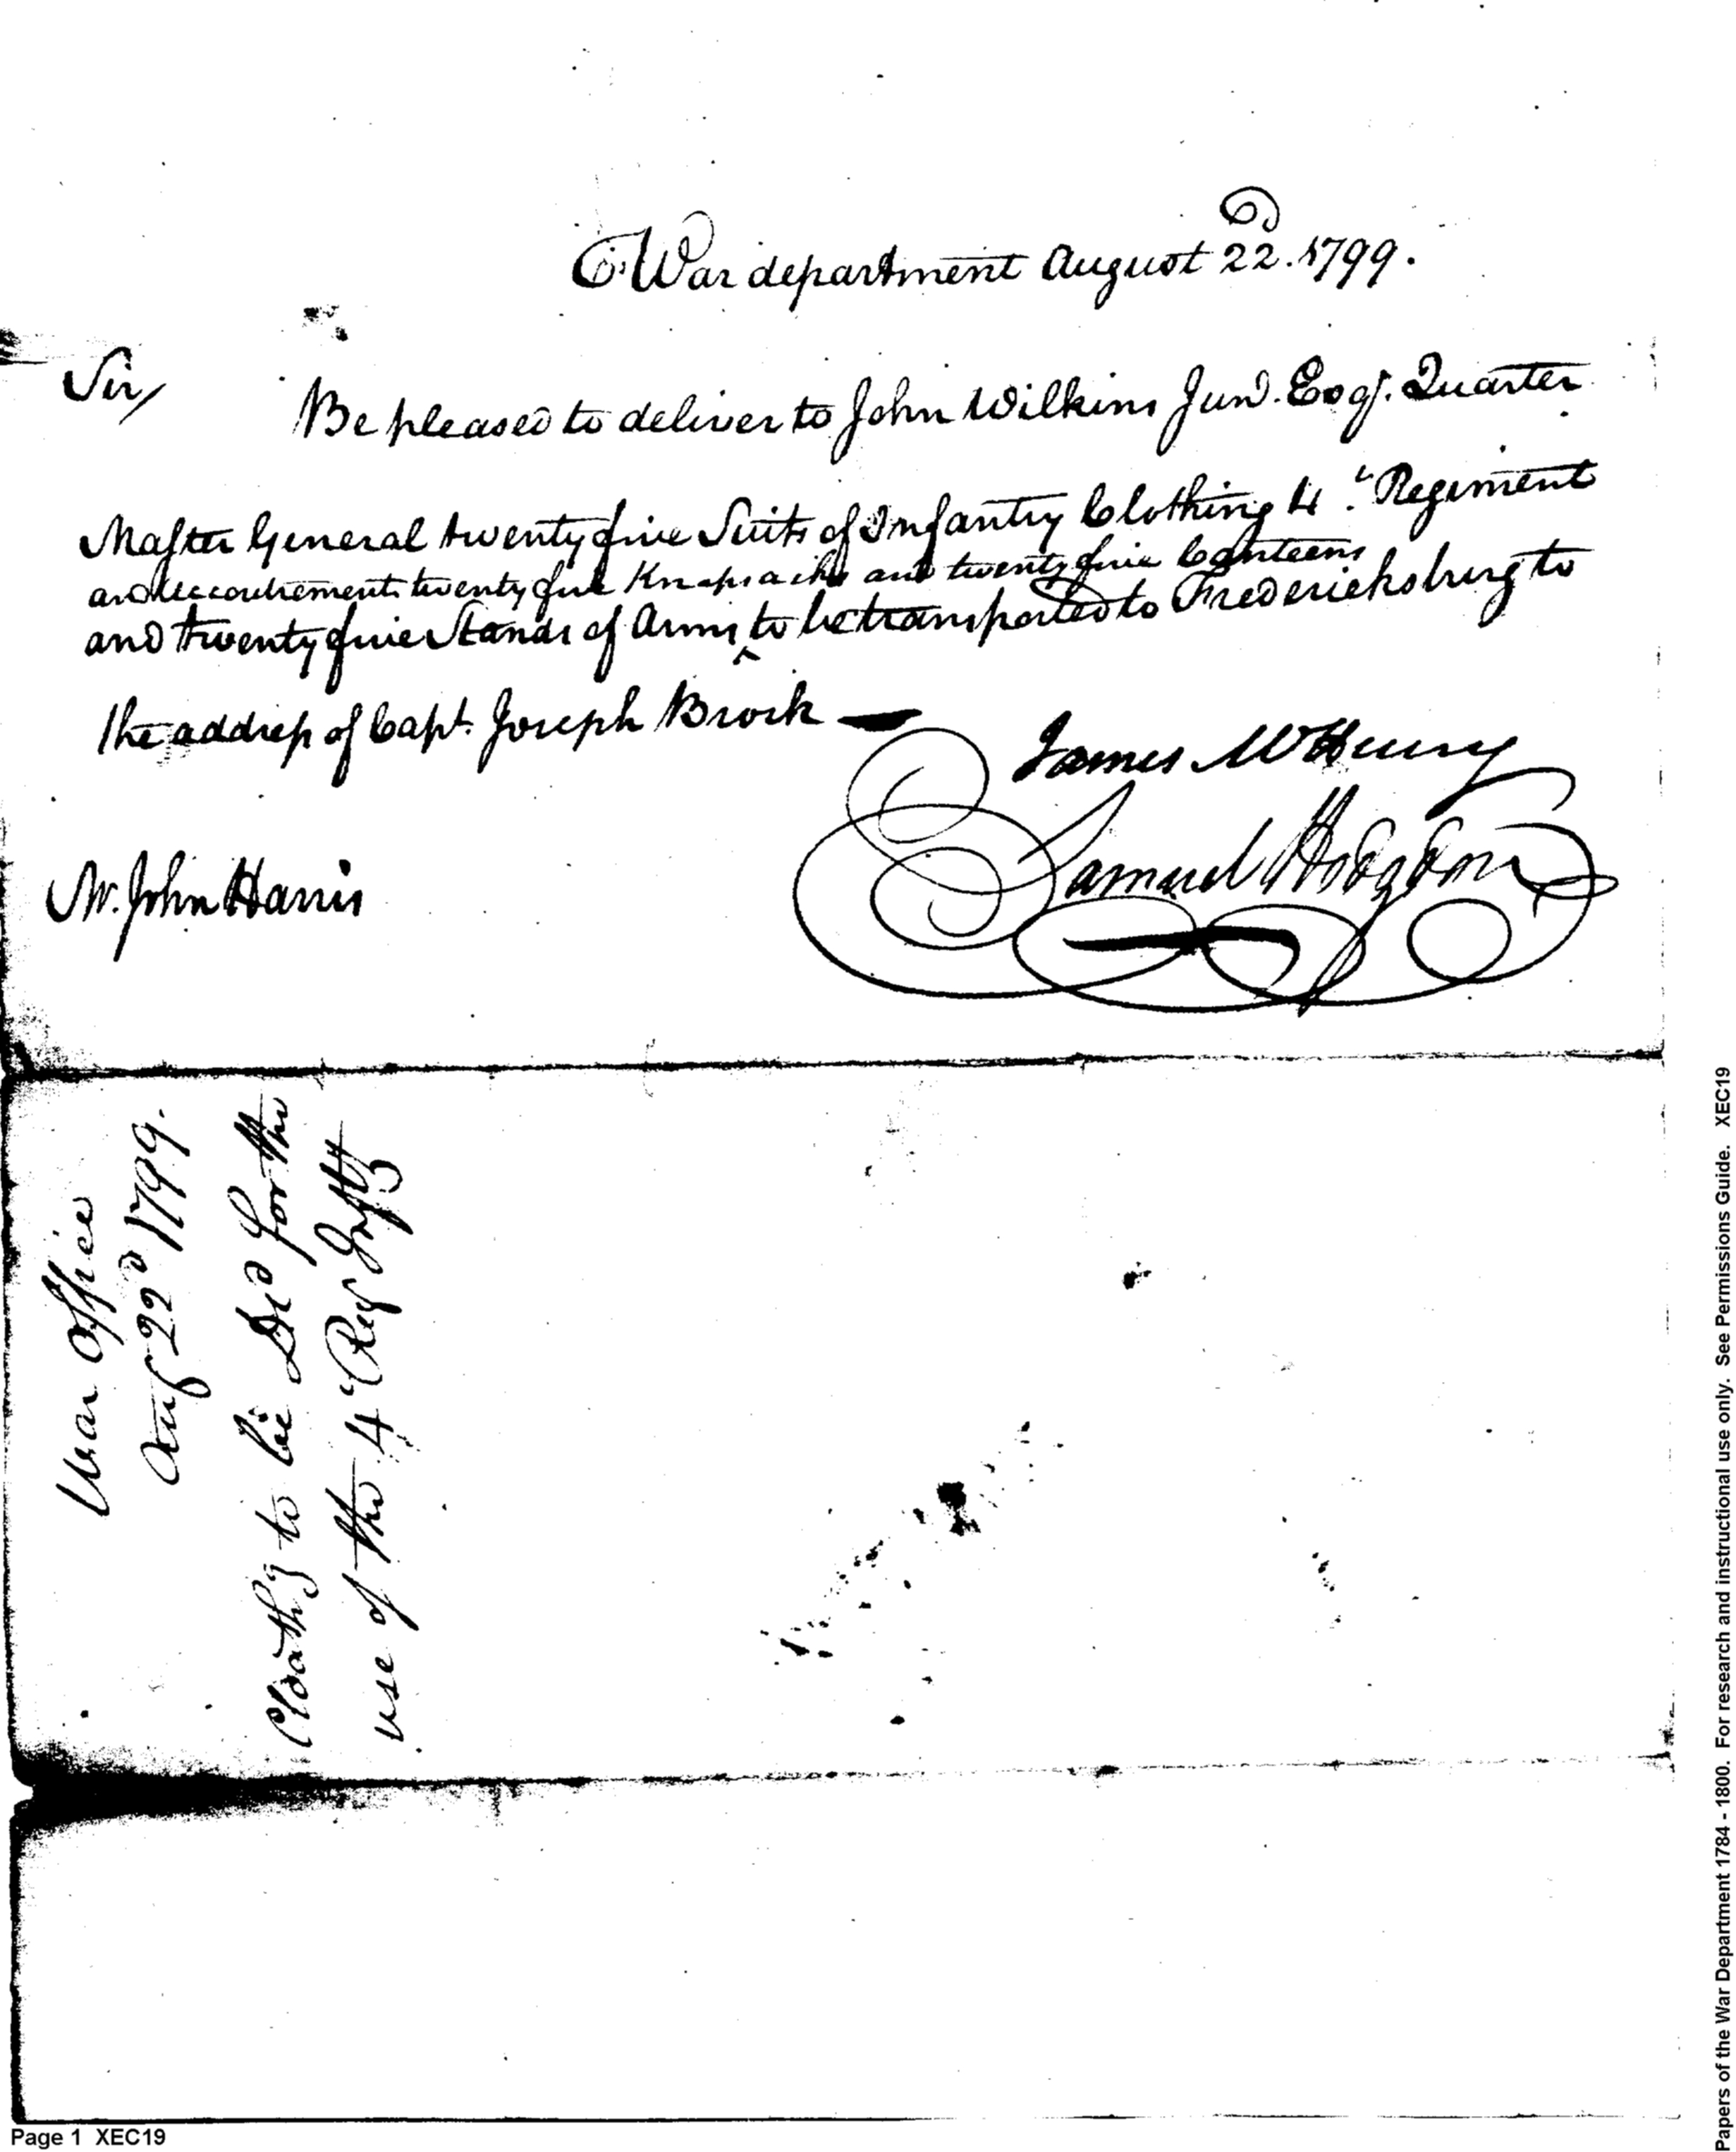 War department August 22d. 1799.
Sir,
Be pleased to deliver to John Wilkins Junr. Esqr. Quarter
Master General twenty five Suits of Infantry Clothing 4th. Regiment
and accoutrements twenty five Knapsacks and twenty five Canteens
and twenty five Stands of Arms ^ to be transported to Fredericksburg to
the address of Capt. Joseph Brock —
James McHenry
Samuel Hodgdon
Mr. John Harris
War Office
Aug 22d 1799.
Cloathg to be Dd for the
use of the 4 Reg Infty
Page 1 XEC19
Papers of the War Department 1784 - 1800. For research and instructional use only. See Permissions Guide. XEC19